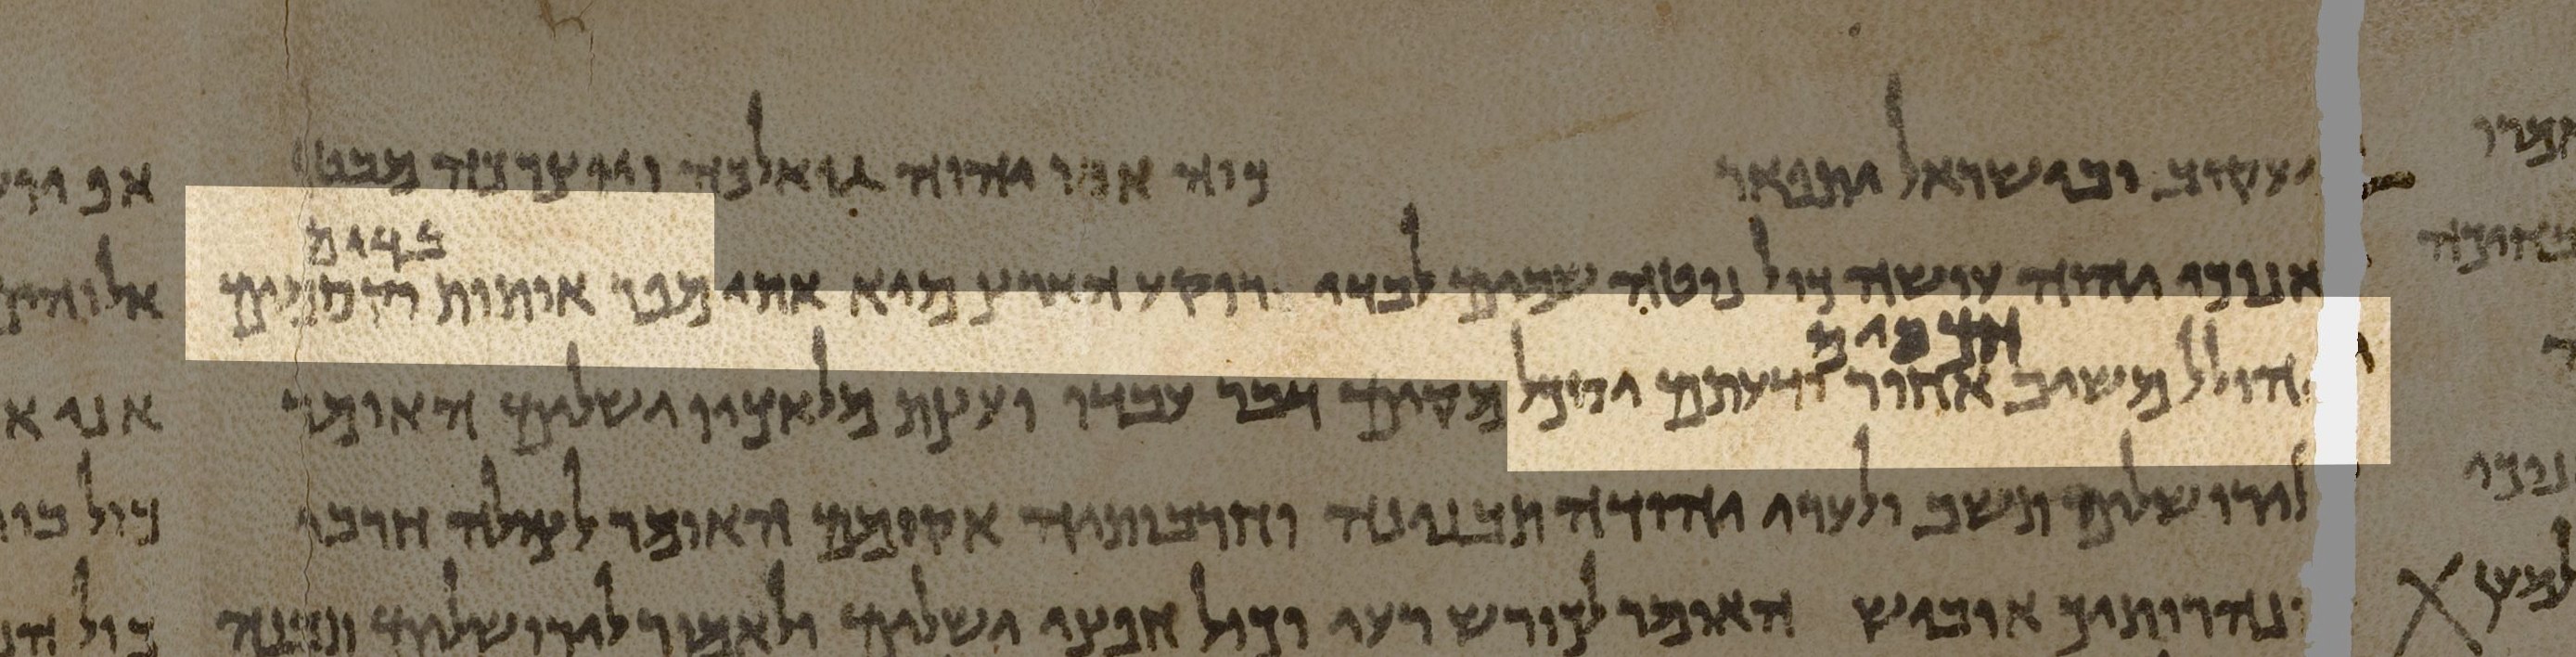 יעקוב ובישראל יתפאר כוה אמר יהוה גואלכה ויוצרכה מבטן
בדים
אנוכי יהוה עושה כול נוטה שמים לבדי רוקע הארץ מיא אתי מפר אותות וקסמים
חכמים
יהולל משיב אחור ודעתם יסכל מקים דבר עבדו ועצת מלאכיו ישלים האומר
לירושלים תשב ולערי יהודה תבנינה וחרבותיה אקומם האומר לצולה חרבי
ונהרותיך אוביש האומר לכורש רעי וכול חפצי ישלים ולאמור לירושלים תבנה